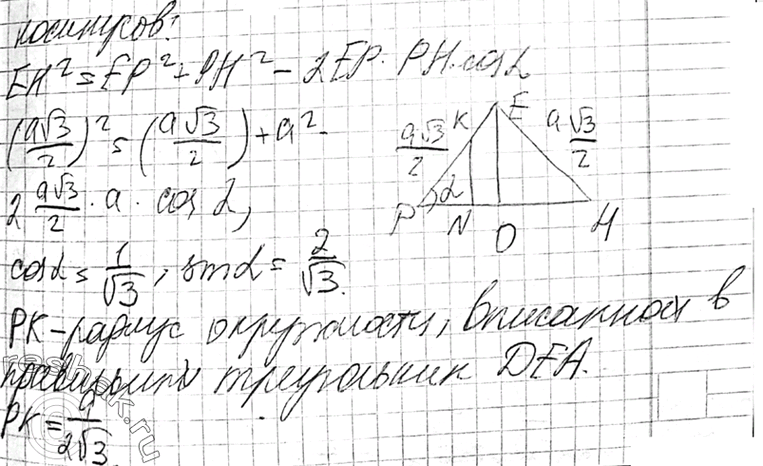 косинусов:
EH² = EP² + PH² - 2EP · PH · cos α
(a√3/2)² = (a√3/2) + a² -
2 a√3/2 · a · cos α,
cos α = 1/√3, sin α = 2/√3.
a√3/2 K E a√3/2
P α N O H
PK - радиус окружности, вписанной в
правильный треугольник DEA.
PK = a/2√3
reshak.ru